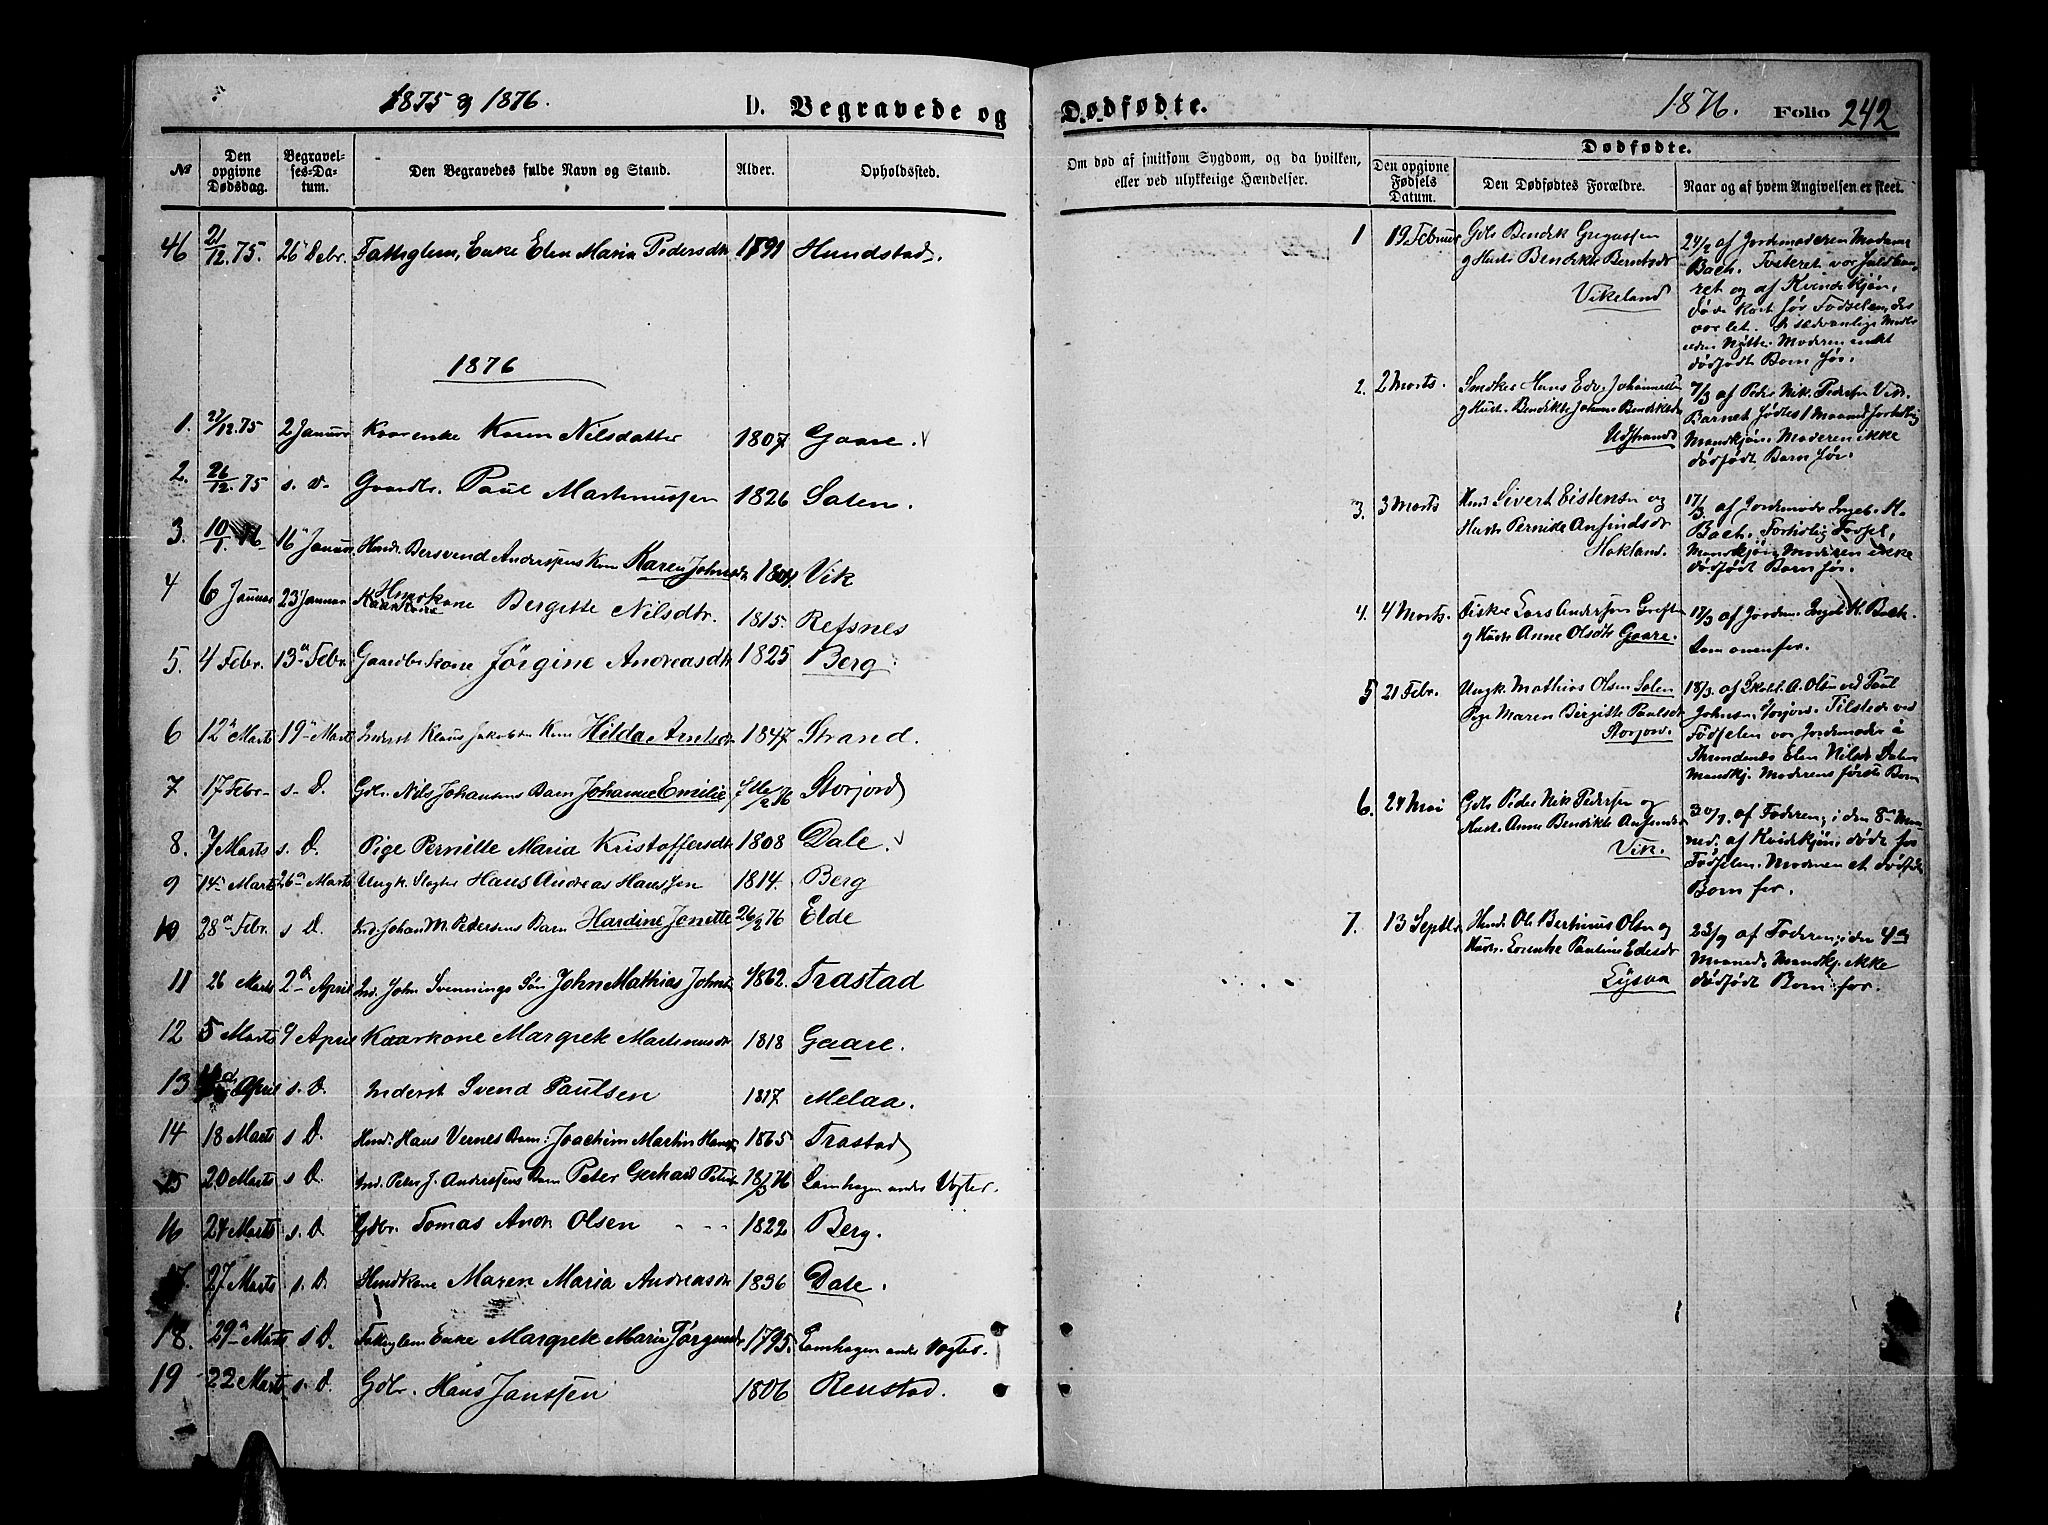 1875 & 1876.
D. Begravede og
№
Den opgivne Dødsdag.
Begravelses-Datum.
Den Begravedes fulde Navn og Stand.
Alder.
Opholdssted.
46 21/12.75. 26 Debr. Fattiglem, Enke Elen Maria Pedersdtr 1791 Hundstad.
1876
1. 27/12.75 2 Januar Kaarenke Karen Nilsdatter 1807 Gaare.
2. 26/12.75 s. D. Gaardbr. Paul Martinussen 1826 Salen.
3. 10/1. 76 16 Januar Hmd. Bersvend Anderssens Kone Karen Johnsdtr 1804. Vik
4 6 Januar 23 Januar Hmdskone Bergitte Nilsdtr. 1815. Refsnes
5. 4 Febr. 13 Febr Gaardbr kone Jørgine Andreasdtr 1825 Berg
6 12 Marts 19 Marts Inderst Klaus Jakobsen Kone Hilda Arntsdtr 1847 Strand.
7 17 Febr. s. D. Gdbr. Nils Johansens Barn Johanne Emilie 76 Storjord
8. 7 Marts s. D. Pige Pernille Maria Kristoffersdtr 1808 Dale.
9 14 Marts 26 Marts Ungk. Slagter Hans Andreas Hanssen 1814. Berg
10 28 Febr. s D. Ind. Johan M. Pedersens Barn Hardine Jonette 26/2 76 Elde
11 26 Marts 2 April Ind. John Svennings Søn John Mathias Johns. 1862. Trastad
12 5 Marts 9 April Kaarkone Margrete Martinusdtr 1818 Gaare.
13 April s. D. Inderst Svend Paulsen 1817. Melaa.
14 18 Marts s D. Hmd. Hans Vernes Barn: Joachim Martin Hans. 1865 Trastad
15 20 Marts s D. Ind. Peter J. Anderssens Barn Peter Gerhard Peters. 18/3 76 Lamhagen under Vogter.
16 24 Marts s. D. Gdbr. Tomas Andr. Olsen 1822 Berg.
17. 27 Marts s. D. Hmdkone Maren Maria Andreasdtr 1836 Dale.
18. 29 Marts s D. Fattiglem Enke Margrete Maria Jørgensdtr 1795. Lamhagen under Vogter.
19 22 Marts s. D. Gdbr. Hans Janssen 1806 Renstad.
Dødfødte.
1876. Folio 242
Om død af smitsom Sygdom, og da hvilken,
eller ved ulykkelige Hændelser.
Dødfødte.
Den opgivne Fødsels Datum.
Den Dødfødtes Forældre.
Naar og af hvem Angivelsen er skeet.
1 19 Februar Gdb Bendik Gregussen
g Hust. Bendikte Berntsdtr
Vikeland
24/2 af Jordemoderen Madame
Bach. Fosteret var fuldbaa-
ret og af Kvindekjøn,
døde kort før Fødselen, der
var let.
Moderen intet
dødfødt Barn før.
2. 2 Marts. Smedker Hans Edv. Johannessen
g Hust. Bendikte Johanna Bendiktsdtr
Udstrand
7/3 af Peder Nik. Pedersen Vik.
Barnet fødtes 1 Maaned for tidlig
Mandkjøn. Moderen ikke
dødfødt Barn før.
3. 3 Marts Hmd Sivert Eistensen og
Hust. Pernike Anfindsdr
Hokland.
17/3. af Jordemoder Ingeb. H.
Bach. Fortidlig Fødsel,
Mandkjøn. Moderen ikke
dødfødt Barn før.
4. 4 Marts. Fisker Lars Andersen
g Hust. Anne Olsdtr Gaare.
17/3 af Jordem. Ingeb. H. Bach.
Som ovenfor.
5 21 Febr. Ungk. Mathias Olsen Salen
Pige Maren Birgitte Paulsdtr
Storjord.
18/3. af Skoll. A. Olsen ved Paul
Johnsen, Storjord. Tilstede ved
Fødselen var Jordemoder i
Throndenes Elen Nilsdr Dalen
Mandkj. Moderens første Barn
6. 24 Mai Gdb Peder Nik Pedersen og
Hust. Anne Bendikte Anfindsdr
Vik.
30/7. af Faderen; i den 8de Maa-
ned. af Kvindekjøn; døde før
Fødselen. Moderen et dødfødt
Barn før.
7. 13 Septbr. Hmd. Ole Bertinus Olsen og
Hust. Lorentse Pauline Edisdr
Lysva
23/9 af Faderen; i den 4de
Maaned. Mandkj. ikke
dødfødt Barn før.